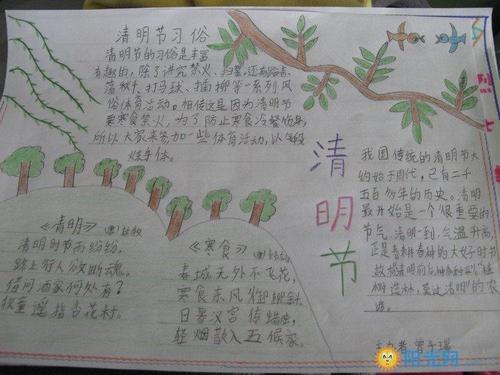 清明节习俗
清明节的习俗是丰富
有趣的,除了讲究禁火、扫墓,还有踏青、
荡秋千、打马球、插柳等一系列风
俗体育活动。相传这是因为清明节
要寒食禁火,为了防止寒食冷餐伤身,
所以大家来参加一些体育活动,以锻
炼身体。
清
明
节
我国传统的清明节大
约始于周代,已有二千
五百多年的历史。清明
最开始是一个很重要的
节气,清明一到,气温升高,
正是春耕春种的大好时节
故有清明前后种
树造林,莫过清明"的农
谚。
《清明》
清明时节雨纷纷,
路上行人欲断魂。
借问酒家何处有?
牧童遥指杏花村。
《寒食》
春城无处不飞花,
寒食东风御柳斜。
日暮汉宫传蜡烛,
轻烟散入五侯家。
阳光网